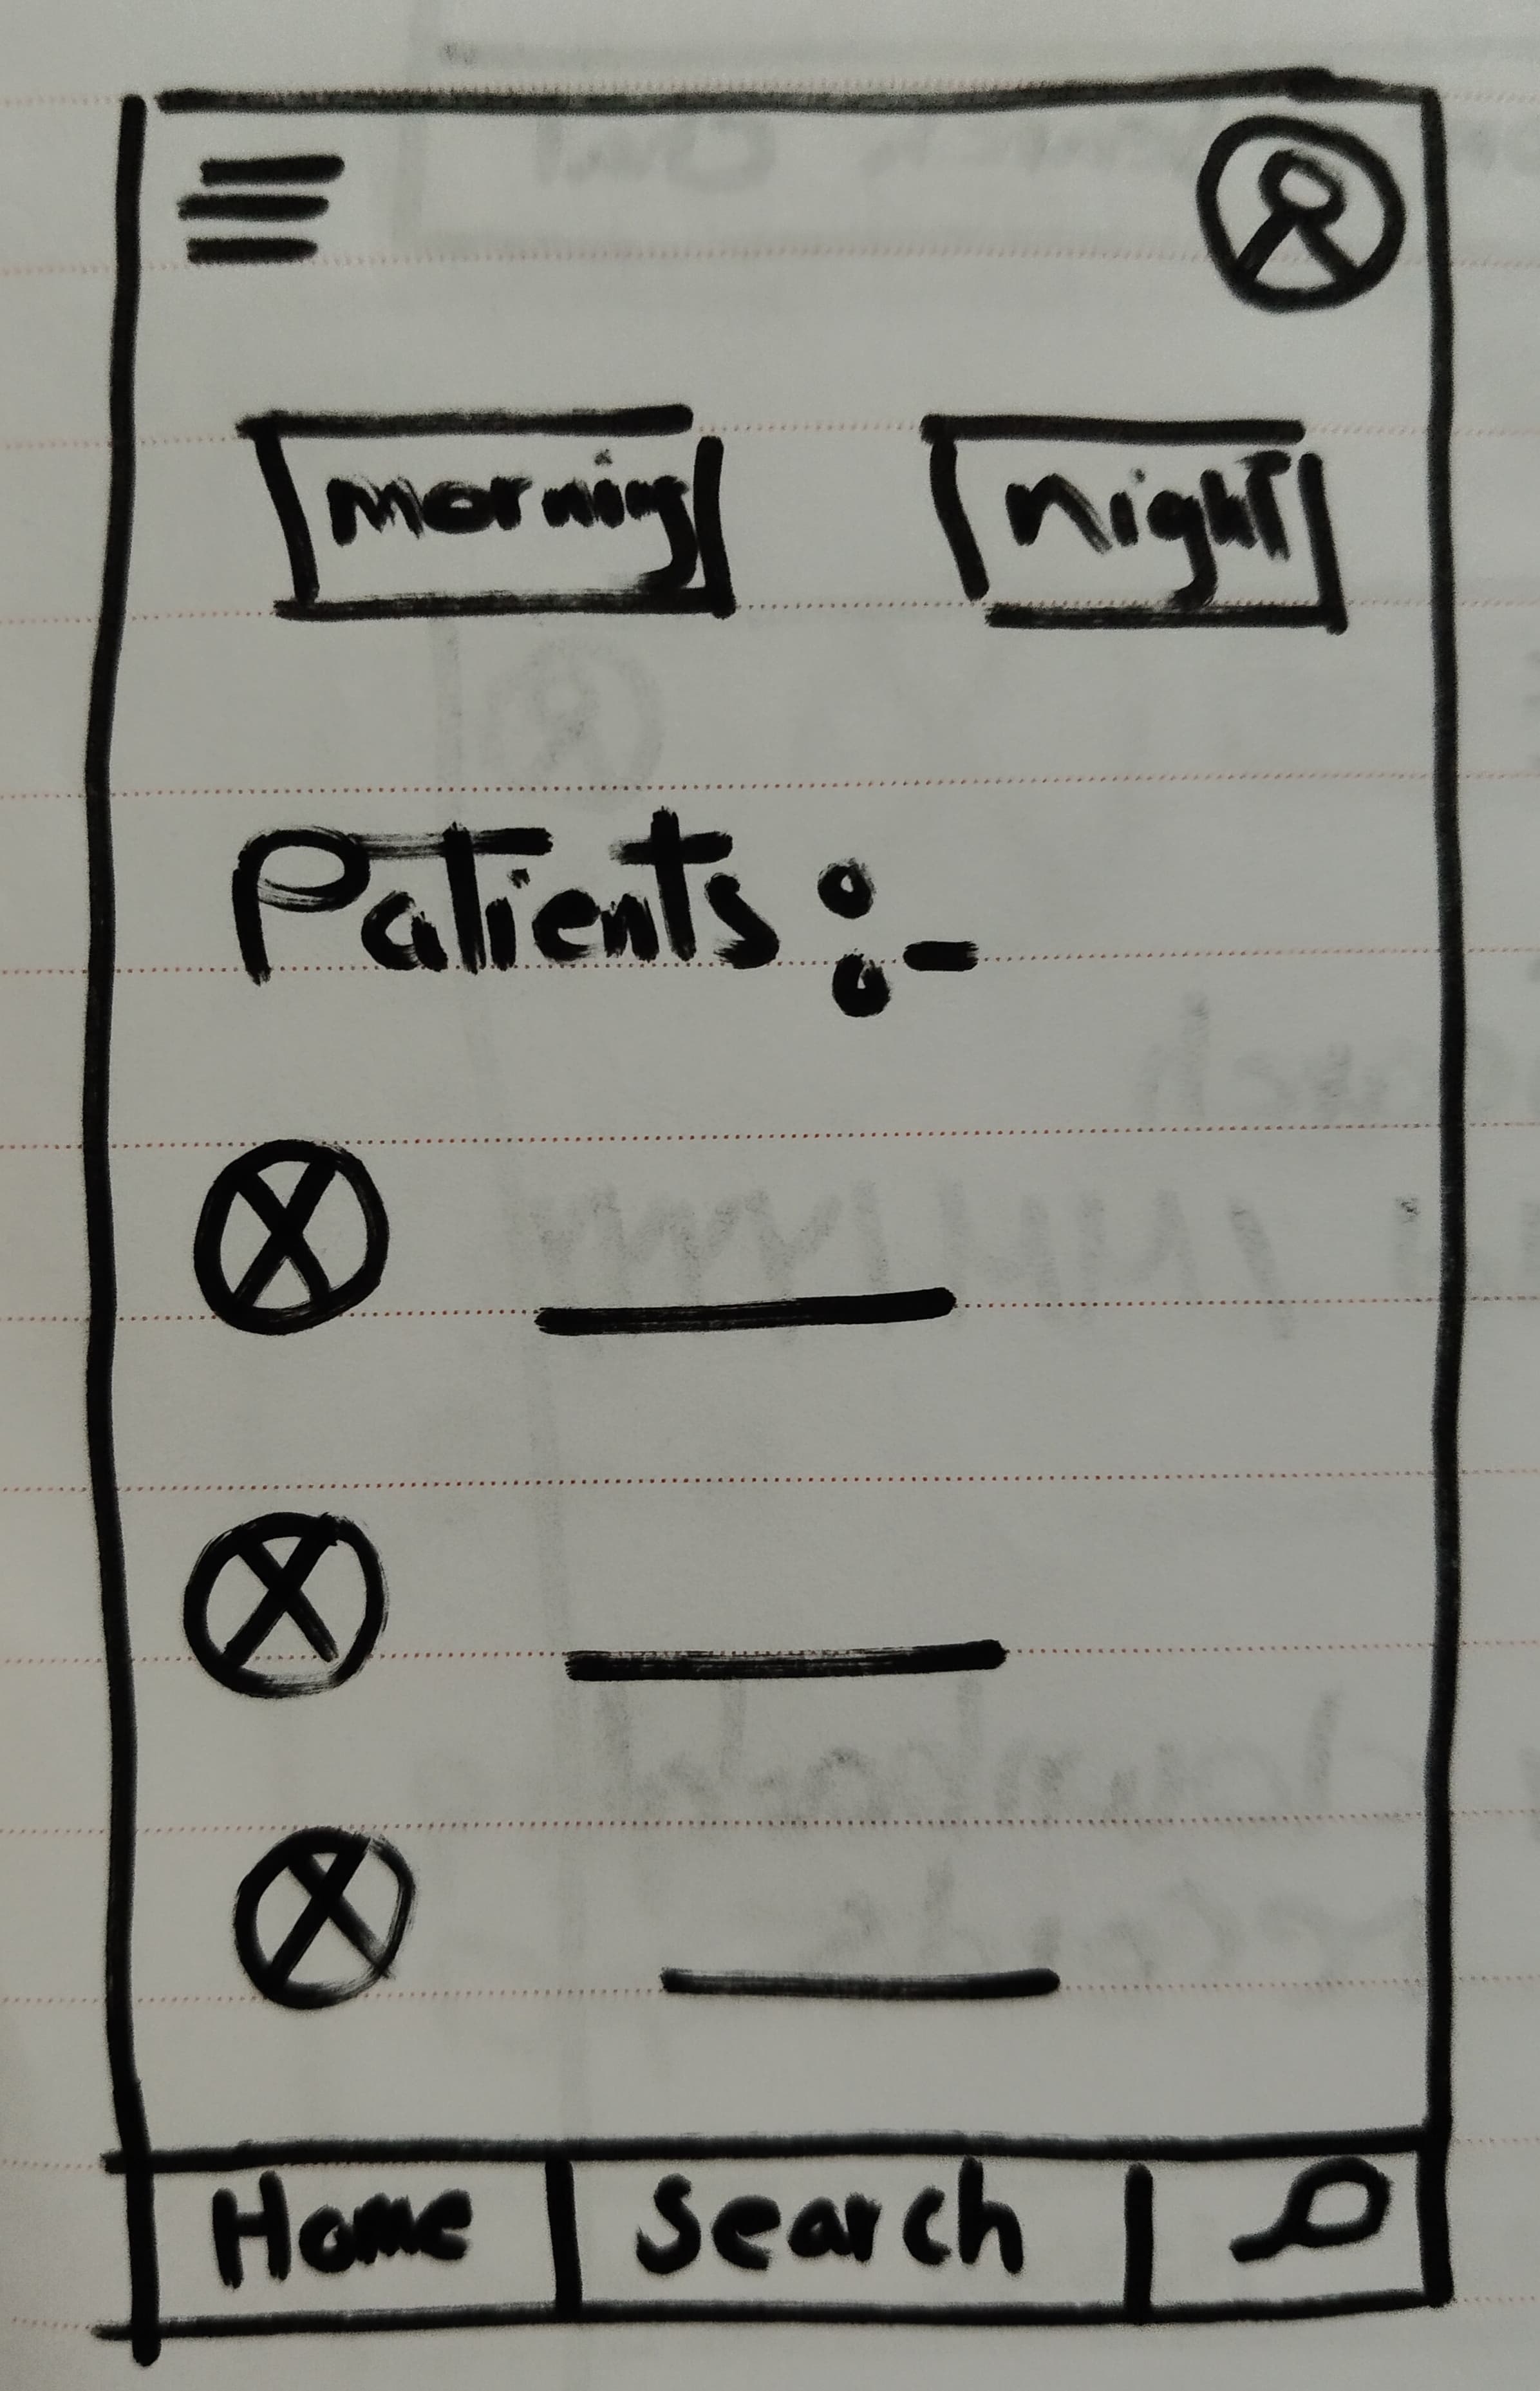 morning night
Patients :-
Home Search